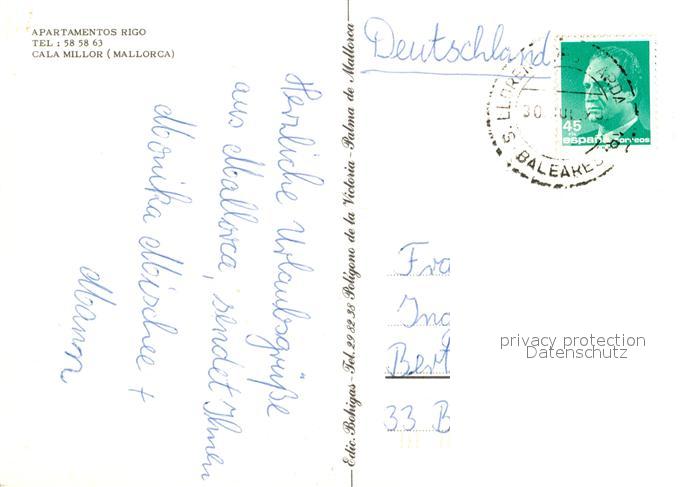 APARTAMENTOS RIGO
TEL : 58 58 63
CALA MILLOR ( MALLORCA )
Herzliche Urlaubsgrüße
aus Mallorca, sendet Ihnen
Monika Mischee +
Manon
Edic. Bohigas - Tel. 29 82 38 Polígono de la Victoria - Palma de Mallorca
Deutschland
S. LLOREN ARDA
30 JUL
BALEARES
45
españa correos
Fra
Ing
Bert
33 B
privacy protection
Datenschutz